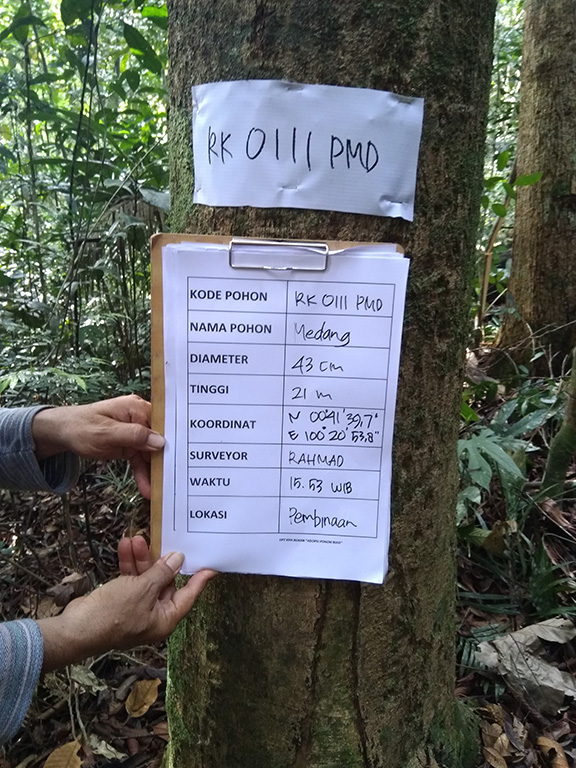 RK 0111 PMD
KODE POHON RK 0111 PMD
NAMA POHON Medang
DIAMETER 43 cm
TINGGI 21 m
KOORDINAT N 00°41'39,7"
E 100°20'53,8"
SURVEYOR RAHMAD
WAKTU 15.53 WIB
LOKASI Pembinaan